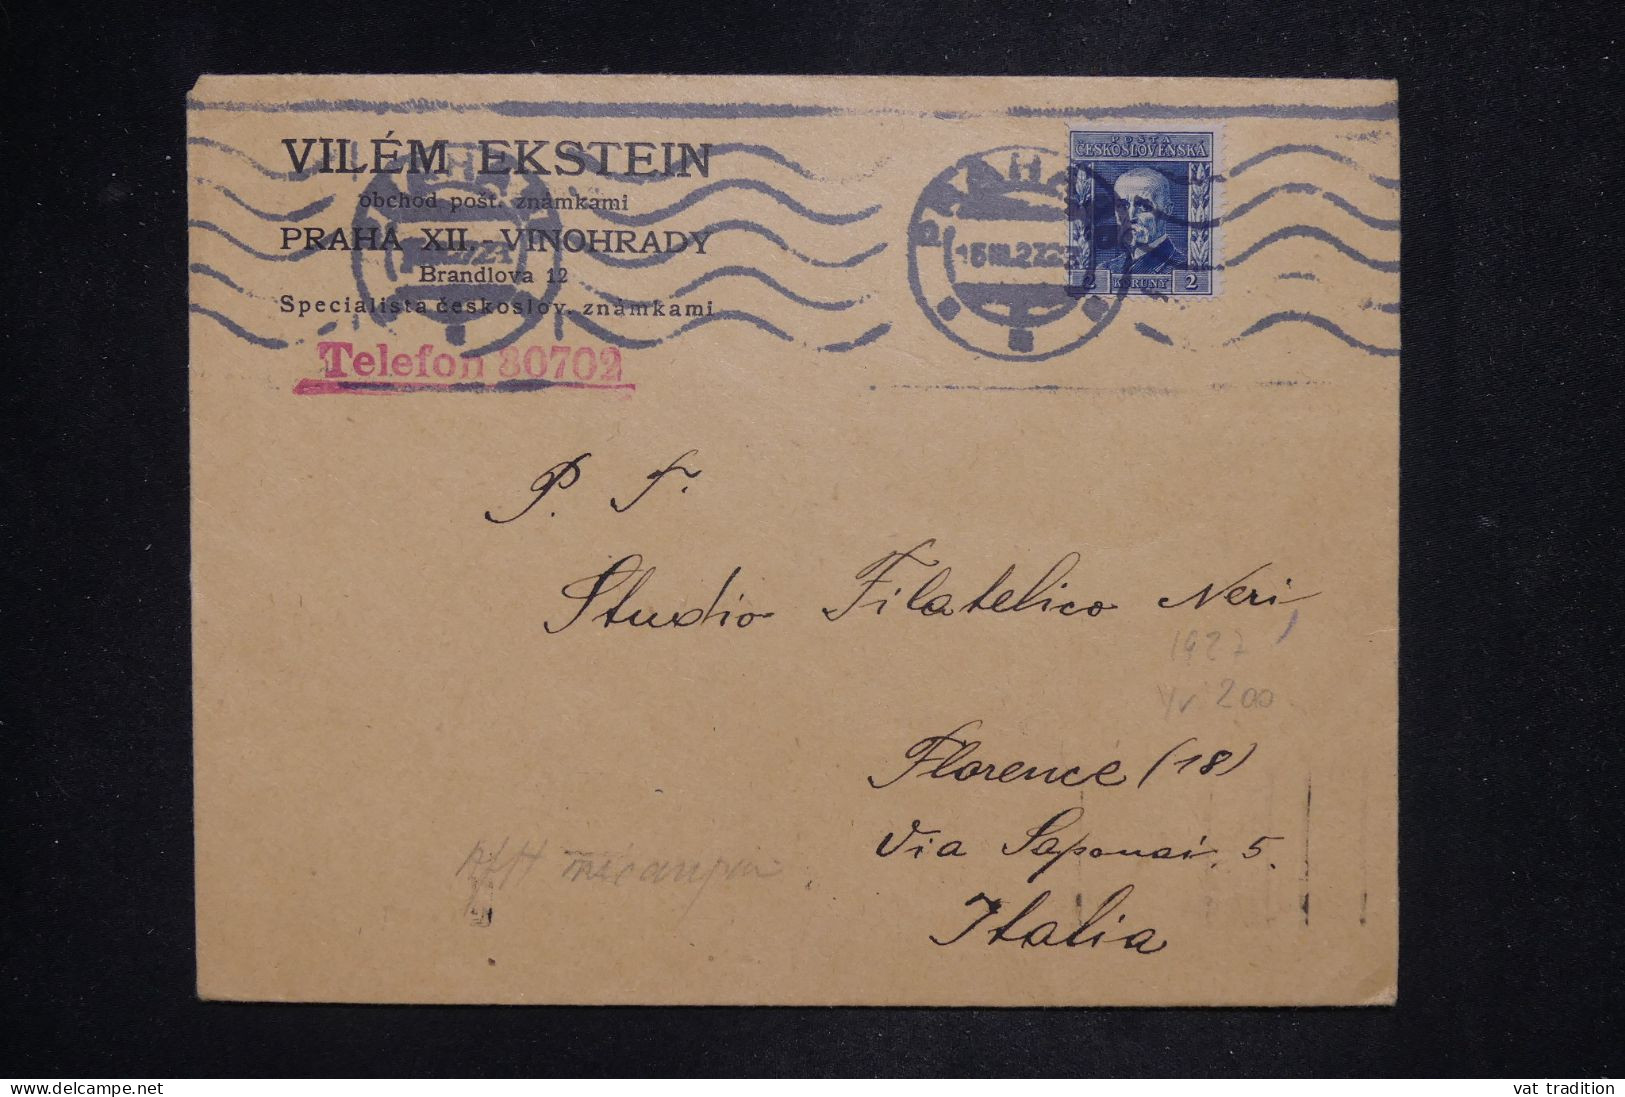 VILÉM EKSTEIN
obchod pošt. známkami
PRAHA XII. VINOHRADY
Brandlova 12
Specialista českoslov. známkami
Telefon 30702
PRAHA
15 III. 27.
POŠTA
ČESKOSLOVENSKÁ
2 KORUNY 2
P. F.
Studio Filatelico Neri
1927
Yv 200
Florence (18)
Via Saponai 5.
Italia
delcampe.net
vat tradition